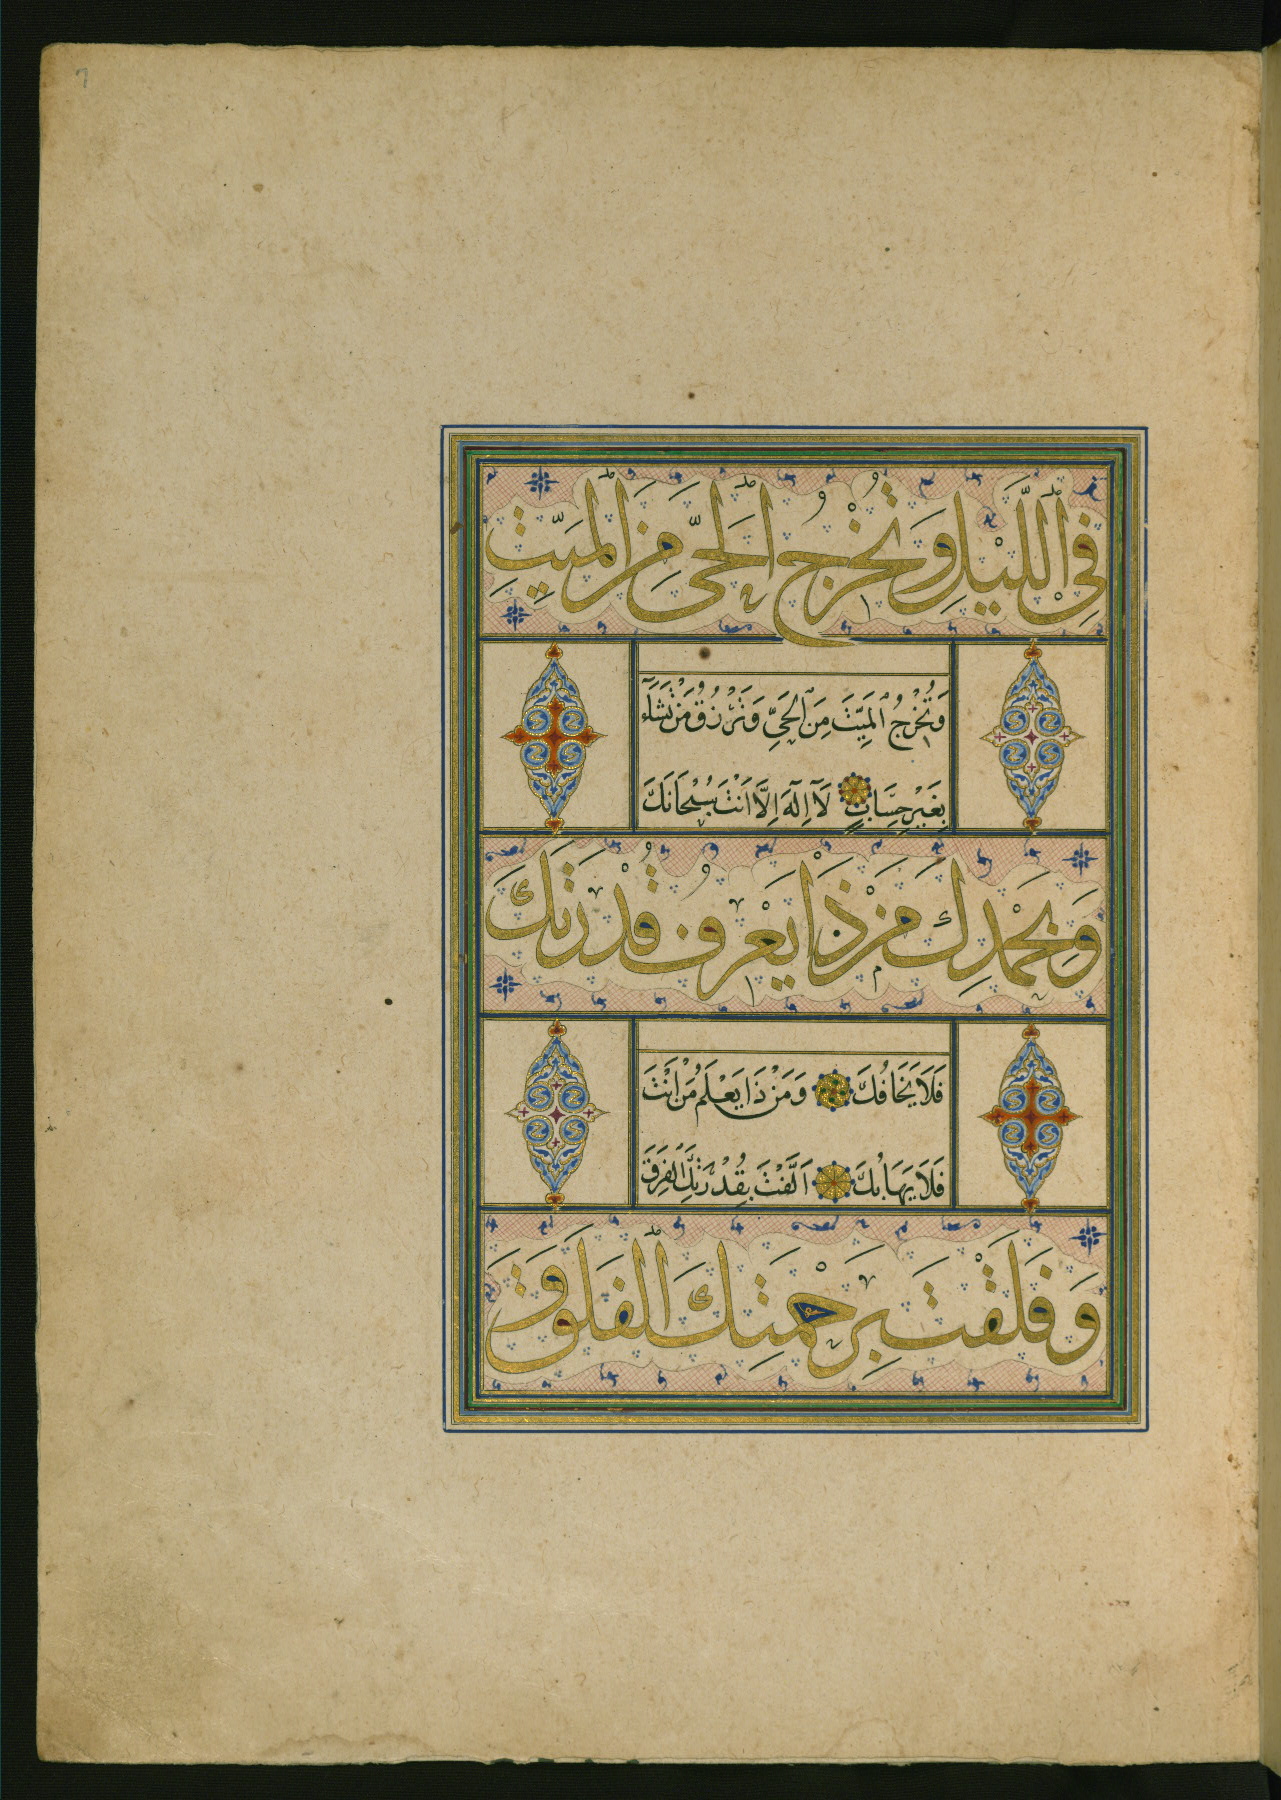 فِي اللَّيْلِ وَتُخْرِجُ الْحَيَّ مِنَ الْمَيِّتِ
وَتُخْرِجُ الْمَيِّتَ مِنَ الْحَيِّ وَتَرْزُقُ مَنْ تَشَآءُ
بِغَيْرِ حِسَابٍ لَآ اِلٰهَ اِلَّا اَنْتَ سُبْحَانَكَ
وَبِحَمْدِكَ مَنْ ذَا يَعْرِفُ قُدْرَتَكَ
فَلَا يَخَافُكَ وَمَنْ ذَا يَعْلَمُ مَنْ اَنْتَ
فَلَا يَهَابُكَ اَلَّفْتَ بِقُدْرَتِكَ الْفِرَقَ
وَفَلَقْتَ بِرَحْمَتِكَ الْفَلَقَ وَ